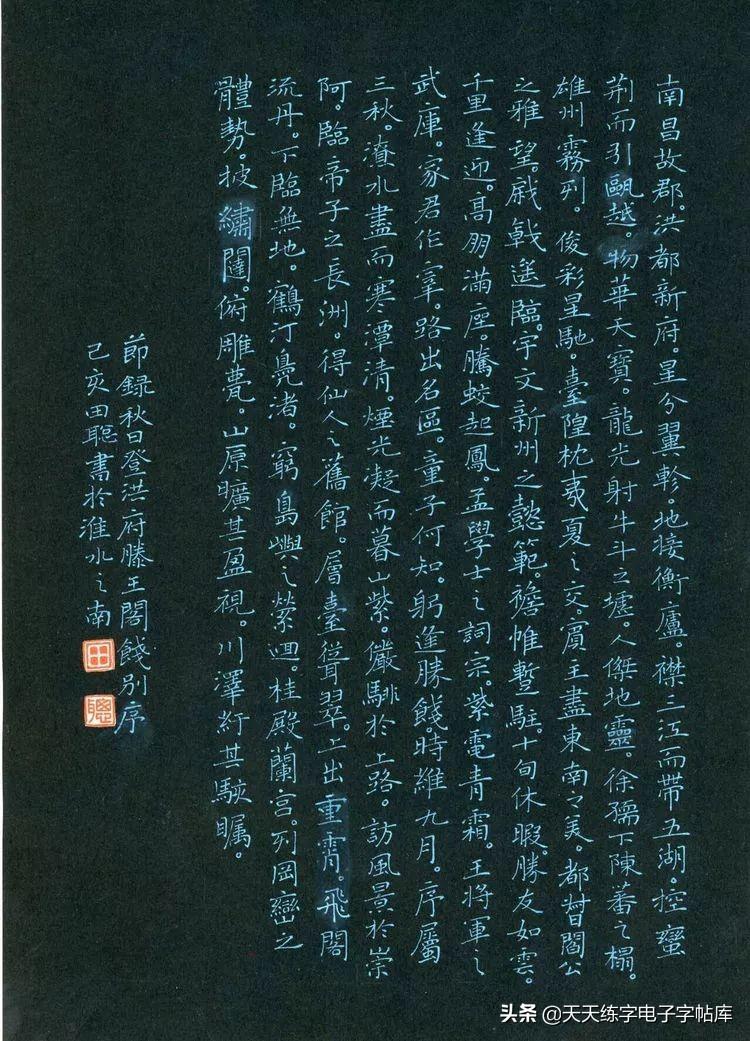 南昌故郡。洪都新府。星分翼軫。地接衡廬。襟三江而帶五湖。控蠻
荆而引甌越。物華天寶。龍光射牛斗之墟。人傑地靈。徐孺下陳蕃之榻。
雄州霧列。俊彩星馳。臺隍枕夷夏之交。賓主盡東南之美。都督閻公
之雅望。棨戟遙臨。宇文新州之懿範。襜帷暫駐。十旬休暇。勝友如雲。
千里逢迎。高朋滿座。騰蛟起鳳。孟學士之詞宗。紫電青霜。王將軍之
武庫。家君作宰。路出名區。童子何知。躬逢勝餞。時維九月。序屬
三秋。潦水盡而寒潭清。煙光凝而暮山紫。儼騑於上路。訪風景於崇
阿。臨帝子之長洲。得仙人之舊館。層臺聳翠。上出重霄。飛閣
流丹。下臨無地。鶴汀鳧渚。窮島嶼之縈迴。桂殿蘭宮。列岡巒之
體勢。披繡闥。俯雕甍。山原曠其盈視。川澤紆其駭矚。
節錄秋日登洪府滕王閣餞別序
己亥田聰書於淮水之南
田
聰
头条 @天天练字电子字帖库